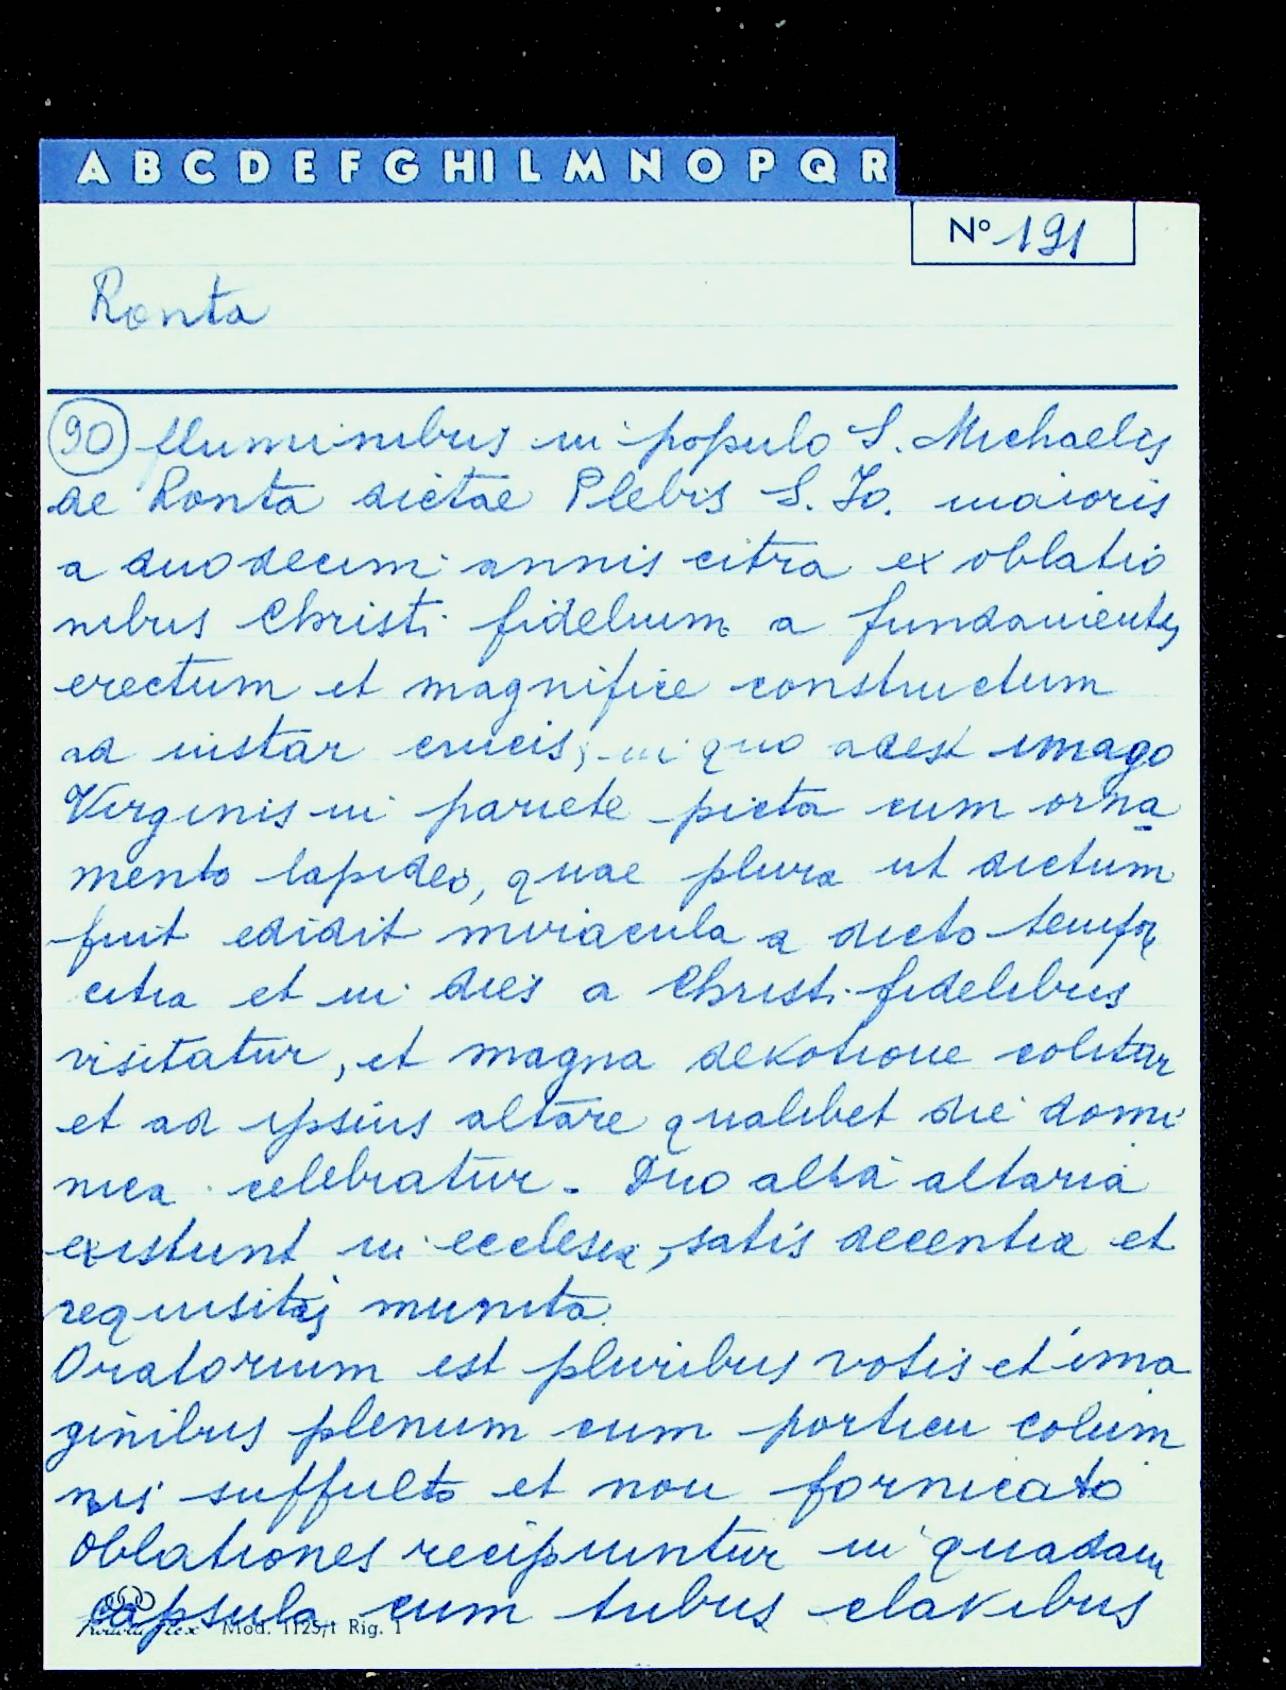 A B C D E F G H I L M N O P Q R
N° 191
Ronta
90 fluminibus in populo S. Michaelis
de Ronta dictae Plebis S. Jo. maioris
a duodecim annis citra ex oblatio
nibus Christi fidelium a fundamentis
erectum et magnifice constructum
ad instar crucis, in quo adest imago
Virginis in pariete picta cum orna
mento lapideo, quae plura ut dictum
fuit edidit miracula a dicto tempor
citra et in dies a Christi fidelibus
visitatur, et magna devotione colitur
et ad ipsius altare qualibet die domi
nica celebratur - Duo alia altaria
existunt in ecclesia, satis decentia et
requisitis munita.
Oratorium est pluribus votis et ima
ginibus plenum cum porticu colum
nis suffulto et non fornicato
Oblationes recipiuntur in quadam
capsula cum tribus clavibus
Mod. 1125/t Rig. 1